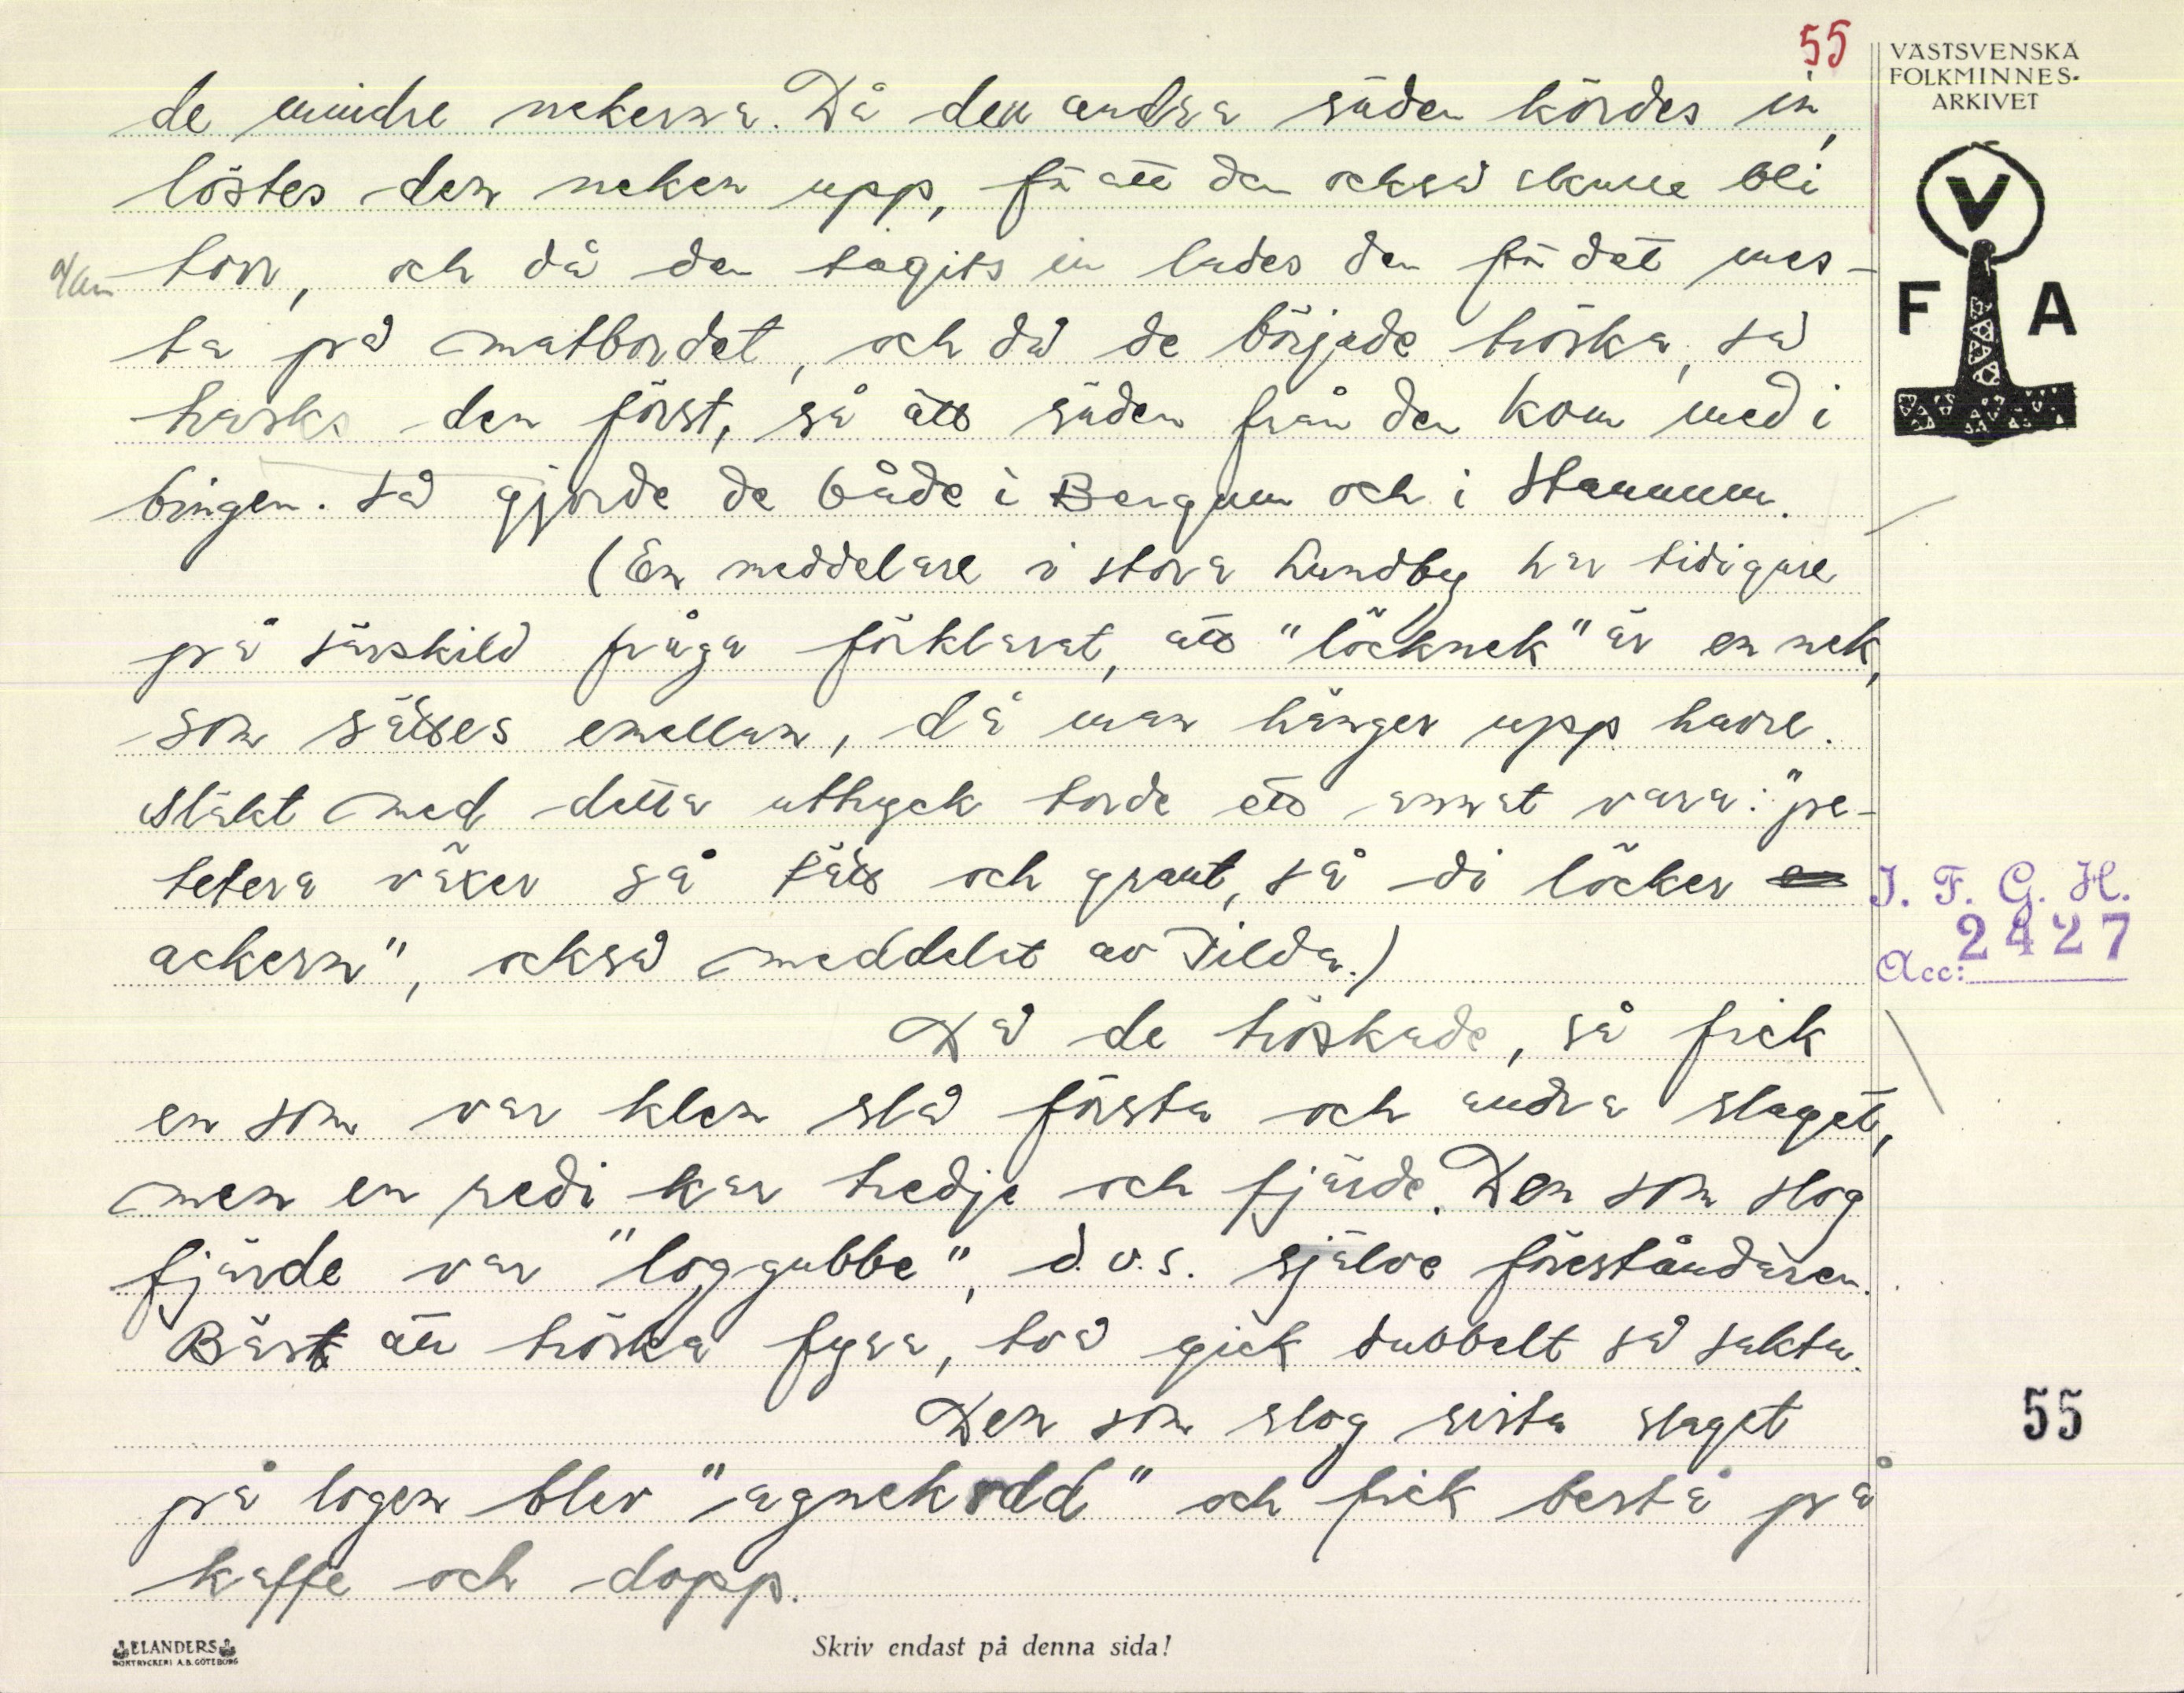 55
VÄSTSVENSKA
FOLKMINNES-
ARKIVET
V
F A
de mindre nekerna. Då den andra säden kördes in,
löstes den neken upp, för att den också skulle bli
torr, och då den tagits in lades den för det mes-
ta på matbordet, och då de började tröska, så
tersks den först, så att säden från den kom med i
bingen. Så gjorde de både i Bergum och i Stannum.
(En meddelare i Stora Lundby har tidigare
på särskild fråga förklarat, att "löcknek" är en nek,
som sättes emellan, då man hänger upp havre.
Släkt med detta uttryck torde ett annat vara: "pe-
tetera växer så tätt och grant, så di löcker
ackern", också meddelat av Tilda.)
Då de tröskade, så fick
en som var klen slå första och andra slaget,
men en redi kar tredje och fjärde. Den som slog
fjärde var "loggubbe", d.v.s. själve föreståndaren.
Bäst att tröska fyra, två gick dubbelt så sakta.
Den som slog sista slaget
på logen blev "agnekodd" och fick bestå på
kaffe och dopp.
I. F. G. H.
Acc: 2427
55
ELANDERS
BOKTRYCKERI A.B. GÖTEBORG
Skriv endast på denna sida!